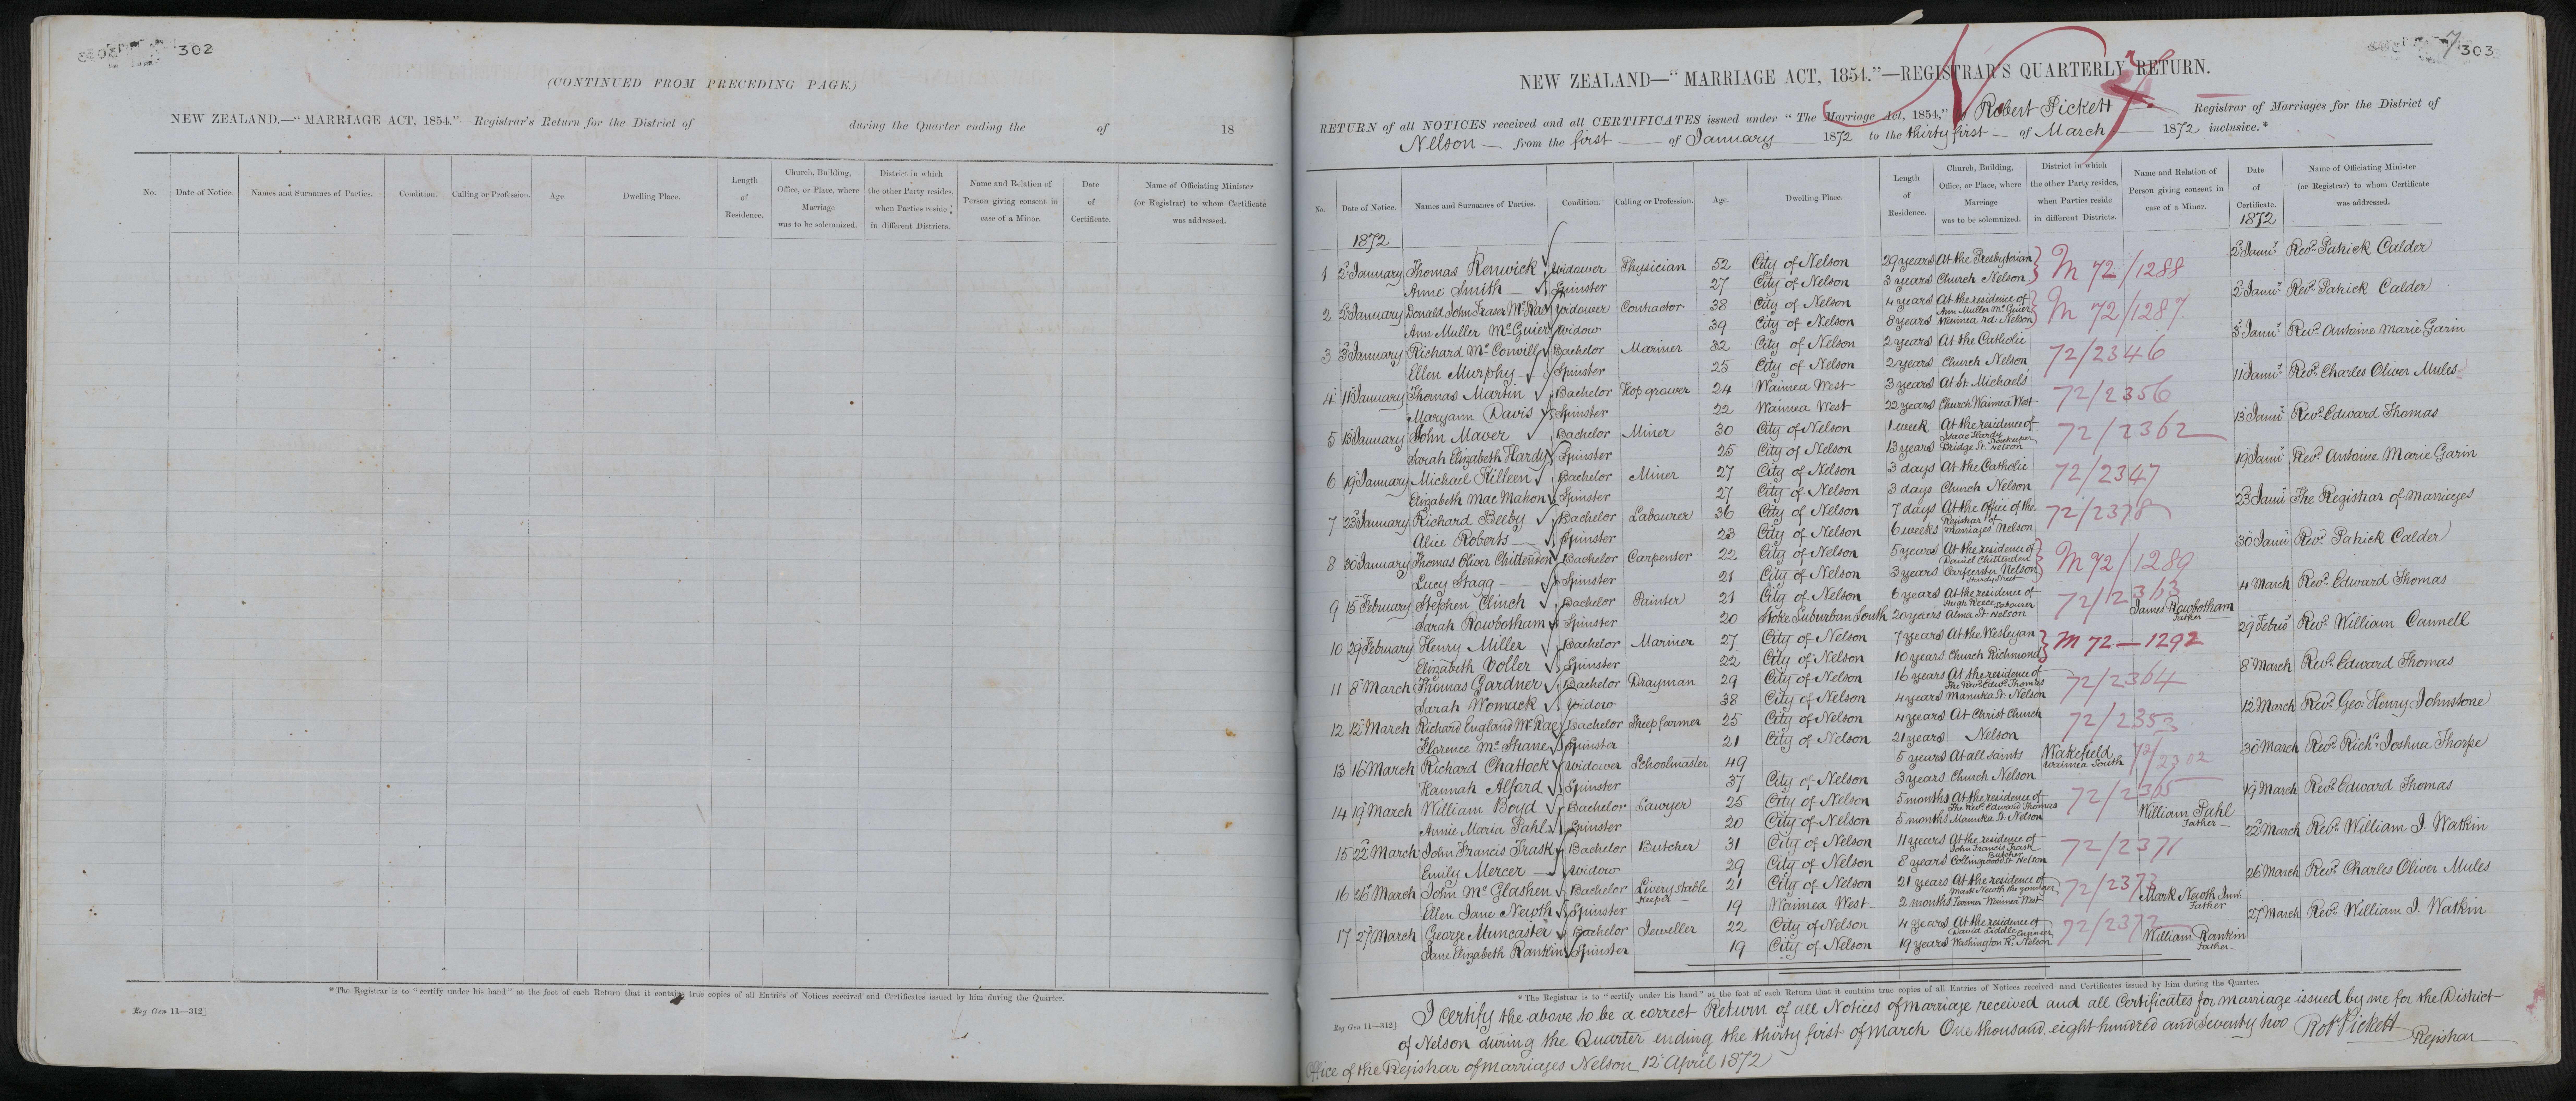 302
(CONTINUED FROM PRECEDING PAGE.)
NEW ZEALAND.—"MARRIAGE ACT, 1854."—Registrar's Return for the District of during the Quarter ending the of 18
No. Date of Notice. Names and Surnames of Parties. Condition. Calling or Profession. Age. Dwelling Place. Length of Residence. Church, Building, Office, or Place, where Marriage was to be solemnized. District in which the other Party resides, when Parties reside in different Districts. Name and Relation of Person giving consent in case of a Minor. Date of Certificate. Name of Officiating Minister (or Registrar) to whom Certificate was addressed.
*The Registrar is to "certify under his hand" at the foot of each Return that it contains true copies of all Entries of Notices received and Certificates issued by him during the Quarter.
Reg Gen 11—312]
7 303
NEW ZEALAND—"MARRIAGE ACT, 1854."—REGISTRAR'S QUARTERLY RETURN.
RETURN of all NOTICES received and all CERTIFICATES issued under "The Marriage Act, 1854," Robert Pickett Registrar of Marriages for the District of
Nelson from the first of January 1872 to the thirty first of March 1872 inclusive.*
No. Date of Notice. Names and Surnames of Parties. Condition. Calling or Profession. Age. Dwelling Place. Length of Residence. Church, Building, Office, or Place, where Marriage was to be solemnized. District in which the other Party resides, when Parties reside in different Districts. Name and Relation of Person giving consent in case of a Minor. Date of Certificate. Name of Officiating Minister (or Registrar) to whom Certificate was addressed.
1872 1872
1 2d January Thomas Renwick Widower Physician 52 City of Nelson 29 years At the Presbyterian M 72/1288 2d Jany Revd Patrick Calder
Anne Smith Spinster 27 City of Nelson 3 years Church Nelson
2 2d January Donald John Fraser McRae Widower Contractor 38 City of Nelson 4 years At the residence of Ann Muller McGuier M 72/1287 2d Jany Revd Patrick Calder
Ann Muller McGuier Widow 39 City of Nelson 8 years Waimea rd. Nelson
3 3d January Richard McConvill Bachelor Mariner 32 City of Nelson 2 years At the Catholic 72/2346 3d Jany Revd Antoine Marie Garin
Ellen Murphy Spinster 25 City of Nelson 2 years Church Nelson
4 11th January Thomas Martin Bachelor Hop grower 24 Waimea West 3 years At St. Michaels 72/2356 11th Jany Revd Charles Oliver Mules
Maryann Davis Spinster 22 Waimea West 22 years Church Waimea West
5 13th January John Maver Bachelor Miner 30 City of Nelson 1 week At the residence of Isaac Hardy Storekeeper 72/2362 13th Jany Revd Edward Thomas
Sarah Elizabeth Hardy Spinster 25 City of Nelson 13 years Bridge St. Nelson
6 19th January Michael Killeen Bachelor Miner 27 City of Nelson 3 days At the Catholic 72/2347 19th Jany Revd Antoine Marie Garin
Elizabeth MacMahon Spinster 27 City of Nelson 3 days Church Nelson
7 23d January Richard Beeby Bachelor Labourer 36 City of Nelson 7 days At the Office of the Registrar of 72/2378 23d Jany The Registrar of Marriages
Alice Roberts Spinster 23 City of Nelson 6 weeks Marriages Nelson
8 30th January Thomas Oliver Chittenden Bachelor Carpenter 22 City of Nelson 5 years At the residence of Daniel Chittenden M 72/1289 30th Jany Revd Patrick Calder
Lucy Stagg Spinster 21 City of Nelson 3 years Carpenter Nelson Hardy Street
9 15th February Stephen Clinch Bachelor Painter 21 City of Nelson 6 years At the residence of Hugh Reece Labourer 72/2363 4 March Revd Edward Thomas
Sarah Rowbotham Spinster 20 Stoke Suburban South 20 years Alma St. Nelson James Rowbotham Father
10 29th February Henry Miller Bachelor Mariner 27 City of Nelson 7 years At the Wesleyan M 72—1292 29th Feb Revd William Cannell
Elizabeth Voller Spinster 22 City of Nelson 10 years Church Richmond
11 8th March Thomas Gardner Bachelor Drayman 29 City of Nelson 16 years At the residence of The Revd Edwd Thomas 72/2364 8th March Revd Edward Thomas
Sarah Womack Widow 38 City of Nelson 4 years Manuka St. Nelson
12 12th March Richard England McRae Bachelor Sheepfarmer 25 City of Nelson 4 years At Christ Church 72/2353 12th March Revd Geo. Henry Johnstone
Florence McShane Spinster 21 City of Nelson 21 years Nelson
13 16th March Richard Chattock Widower Schoolmaster 49 5 years At all Saints Wakefield Waimea South 72/2302 30th March Revd Richd Joshua Thorpe
Hannah Alford Spinster 37 City of Nelson 3 years Church Nelson
14 19th March William Boyd Bachelor Sawyer 25 City of Nelson 5 months At the residence of The Revd Edward Thomas 72/2365 19th March Revd Edward Thomas
Annie Maria Pahl Spinster 20 City of Nelson 5 months Manuka St. Nelson William Pahl Father
15 22d March John Francis Trask Bachelor Butcher 31 City of Nelson 11 years At the residence of John Francis Trask Butcher 72/2371 22d March Revd William J. Watkin
Emily Mercer Widow 29 City of Nelson 8 years Collingwood St. Nelson
16 26th March John McGlashen Bachelor Livery stable Keeper 21 City of Nelson 21 years At the residence of Mark Newth the younger 72/2373 Mark Newth Junr Father 26 March Revd Charles Oliver Mules
Ellen Jane Newth Spinster 19 Waimea West 2 months Farmer Waimea West
17 27th March George Muncaster Bachelor Jeweller 22 City of Nelson 4 years At the residence of David Liddle Engineer 72/2372 27 March Revd William J. Watkin
Jane Elizabeth Rankin Spinster 19 City of Nelson 19 years Washington Rd. Nelson William Rankin Father
*The Registrar is to "certify under his hand" at the foot of each Return that it contains true copies of all Entries of Notices received and Certificates issued by him during the Quarter.
Reg Gen 11—312]
I certify the above to be a correct Return of all Notices of marriage received and all Certificates for marriage issued by me for the District
of Nelson during the Quarter ending the thirty first of March One thousand eight hundred and Seventy two Robt Pickett Registrar
Office of the Registrar of marriages Nelson 12th April 1872